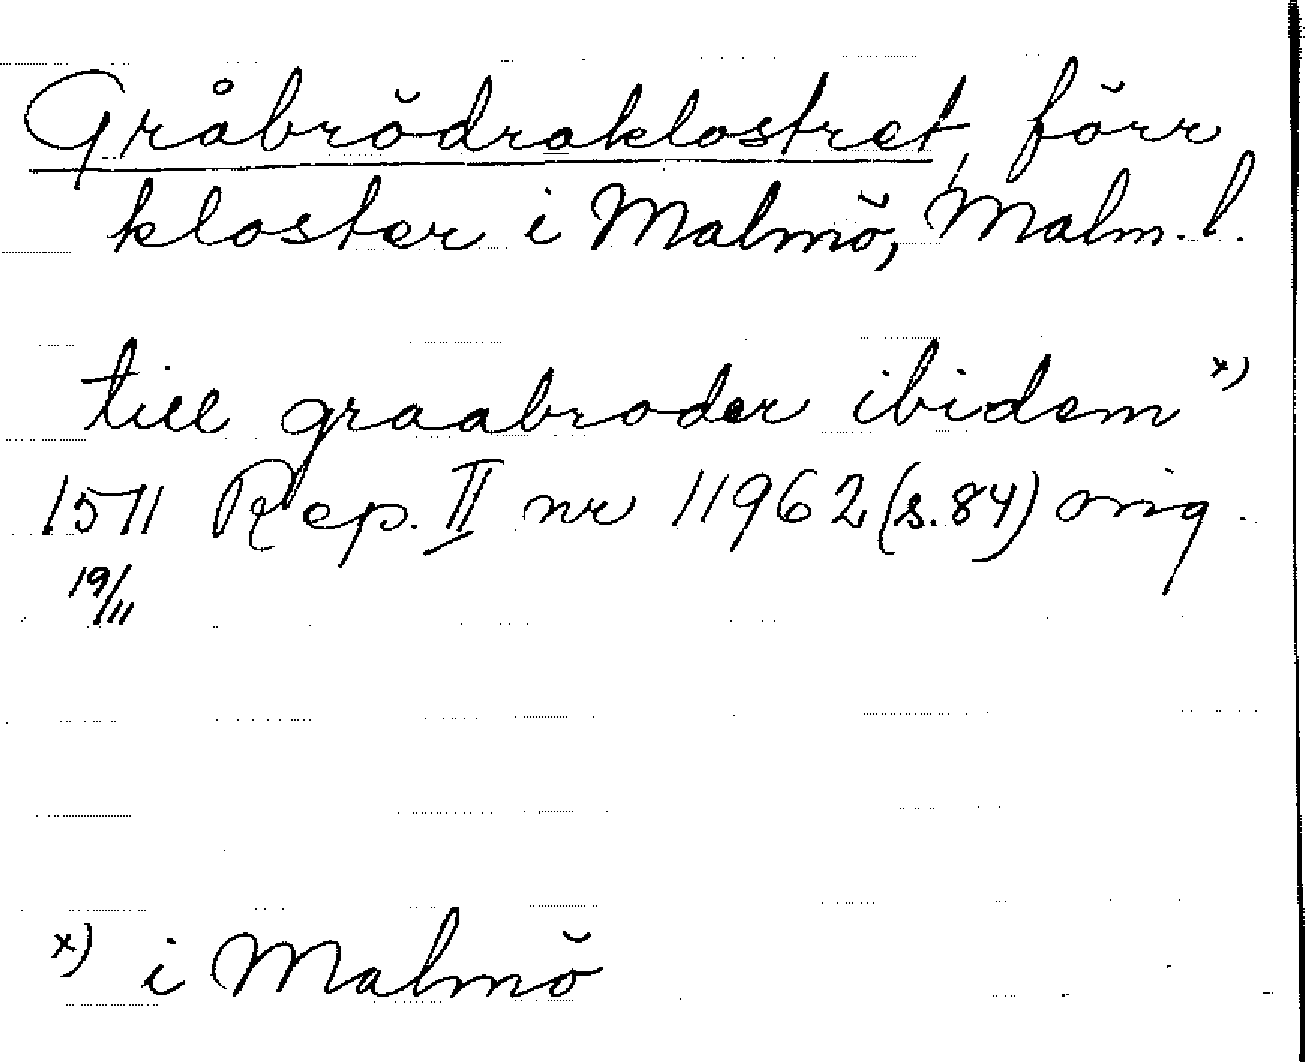 Gråbrödraklostret, förr
kloster i Malmö, Malm. l.
till graabroder ibidem x)
1511 Rep. II nr 11962 (s. 84) orig.
19/11
x) i Malmö